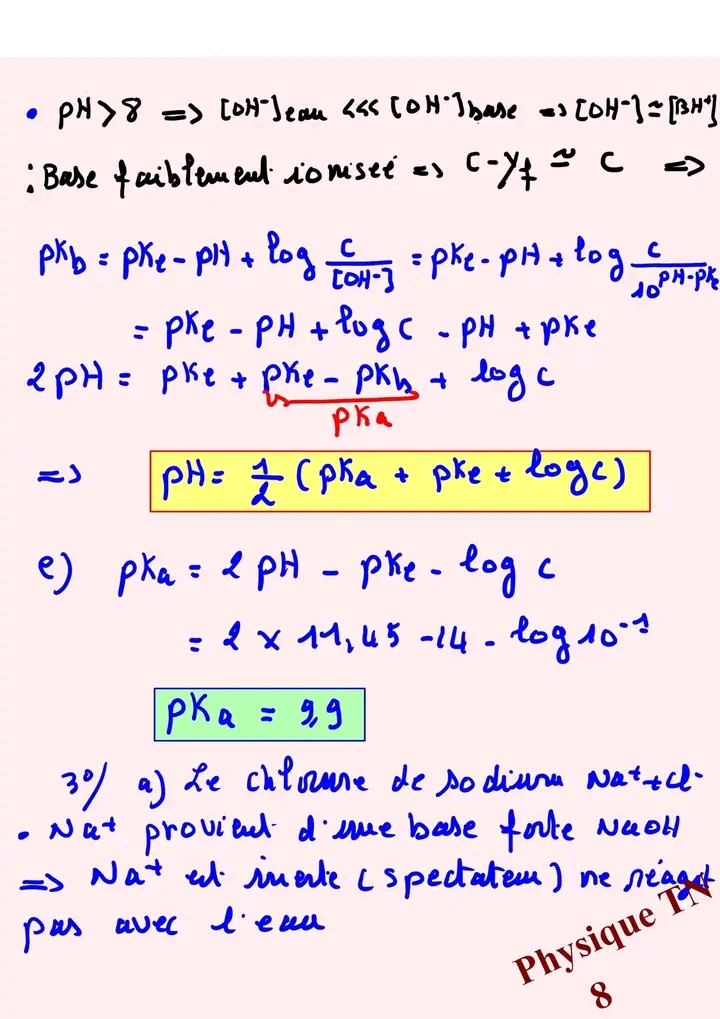 • pH > 8 => [OH⁻]eau <<< [OH⁻]base => [OH⁻] ≃ [BH⁺]
: Base faiblement ionisée => C - yf ≃ C =>
pKb = pKe - pH + log C/[OH⁻] = pKe - pH + log C/10^pH-pKe
= pKe - pH + log C - pH + pKe
2 pH = pKe + pKe - pKb + log C
pKa
=> pH = 1/2 (pKa + pKe + log C)
e) pKa = 2 pH - pKe - log C
= 2 × 11,45 - 14 - log 10⁻¹
pKa = 9,9
3°/ a) Le chlorure de sodium Na⁺ + Cl⁻
• Na⁺ provient d'une base forte NaOH
=> Na⁺ est inerte (spectateur) ne réagit
pas avec l'eau
Physique TN
8